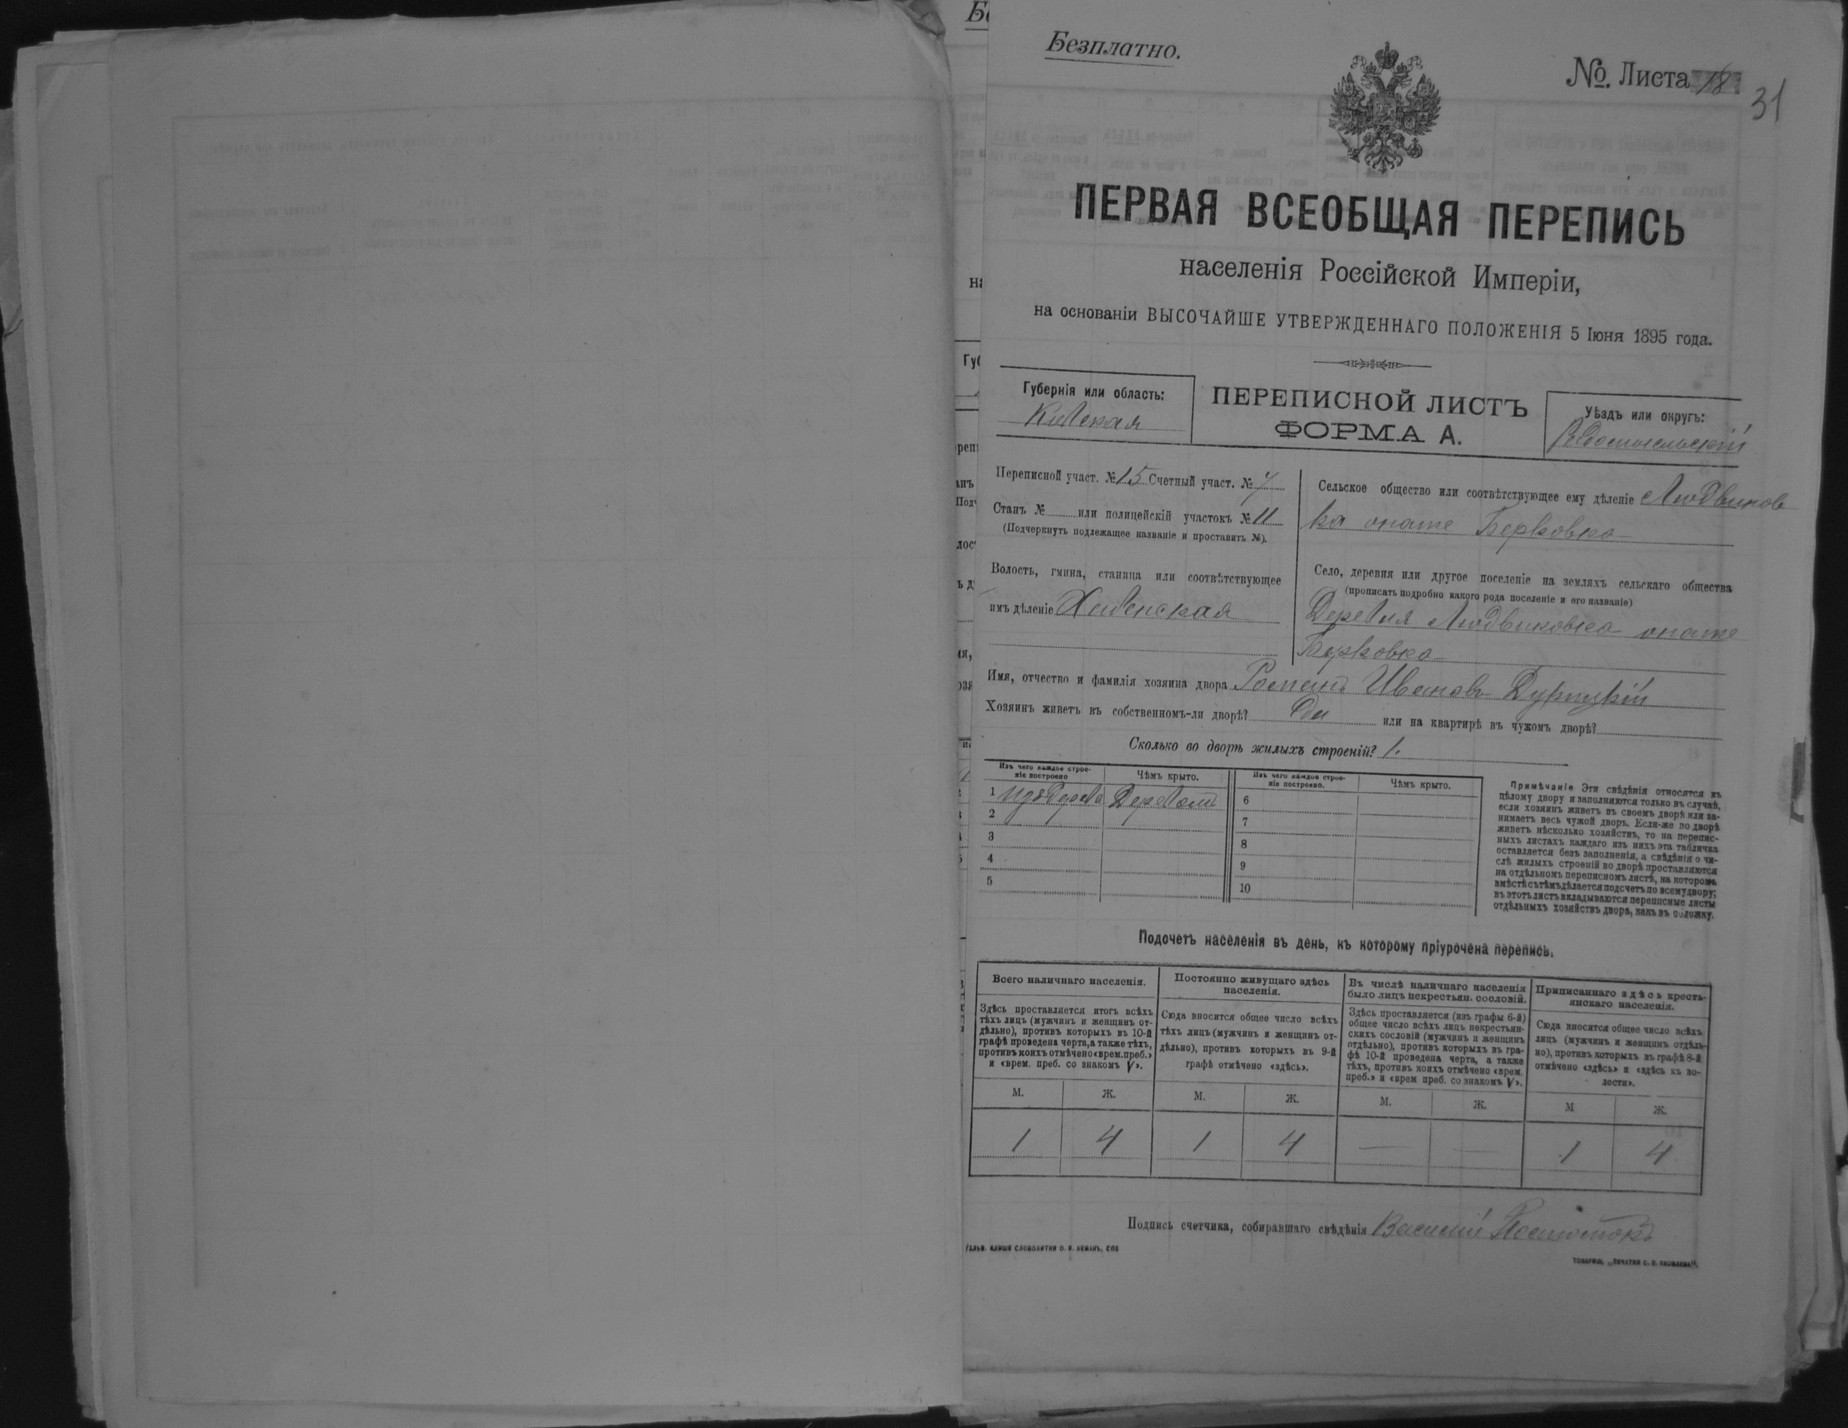 Безплатно.
№. Листа 18
31
ПЕРВАЯ ВСЕОБЩАЯ ПЕРЕПИСЬ
населенія Россійской Имперіи,
на основаніи ВЫСОЧАЙШЕ УТВЕРЖДЕННАГО ПОЛОЖЕНІЯ 5 Іюня 1895 года.
Губернія или область:
Кіевская
ПЕРЕПИСНОЙ ЛИСТЪ
ФОРМА А.
Уѣздъ или округъ:
Радомысльскій
Переписной участ. № 15 Счетный участ. № 7
Станъ № или полицейскій участокъ № 11
(Подчеркнуть подлежащее названіе и проставить №).
Волость, гмина, станица или соотвѣтствующее
имъ дѣленіе Хабенская
Сельское общество или соотвѣтствующее ему дѣленіе Людвинов
ка
Село, деревня или другое поселеніе на земляхъ сельскаго общества
(прописать подробно какого рода поселеніе и его названіе)
Деревня
Имя, отчество и фамилія хозяина двора Романъ Ивановъ
Хозяинъ живетъ въ собственномъ-ли дворѣ? Да или на квартирѣ въ чужомъ дворѣ?
Сколько во дворѣ жилыхъ строеній? 1.
Изъ чего каждое строе-
ніе построено
Чѣмъ крыто.
Изъ чего каждое строе-
ніе построено.
Чѣмъ крыто.
1 изъ дерева Деревомъ
2
3
4
5
6
7
8
9
10
Примѣчаніе Эти свѣдѣнія относятся къ
цѣлому двору и заполняются только въ случаѣ,
если хозяинъ живетъ въ своемъ дворѣ или за-
нимаетъ весь чужой дворъ. Если-же во дворѣ
живетъ нѣсколько хозяйствъ, то на перепис-
ныхъ листахъ каждаго изъ нихъ эта табличка
оставляется безъ заполненія, а свѣдѣнія о чи-
слѣ жилыхъ строеній во дворѣ проставляются
на отдѣльномъ переписномъ листѣ, на которомъ
вмѣстѣ съ тѣмъ дѣлается подсчетъ по всему двору;
въ этотъ листъ вкладываются переписные листы
отдѣльныхъ хозяйствъ двора, какъ въ обложку.
Подсчетъ населенія въ день, къ которому пріурочена перепись.
Всего наличнаго населенія.
Постоянно живущаго здѣсь
населенія.
Въ числѣ наличнаго населенія
было лицъ некрестьян. сословій.
Приписаннаго здѣсь кресть-
янскаго населенія.
Здѣсь проставляется итогъ всѣхъ
тѣхъ лицъ (мужчинъ и женщинъ от-
дѣльно), противъ которыхъ въ 10-й
графѣ проведена черта, а также тѣхъ,
противъ коихъ отмѣчено «врем. преб.»
и «врем. преб. со знакомъ V».
Сюда вносится общее число всѣхъ
тѣхъ лицъ (мужчинъ и женщинъ от-
дѣльно), противъ которыхъ въ 9-й
графѣ отмѣчено «здѣсь».
Здѣсь проставляется (изъ графы 6-й)
общее число всѣхъ лицъ некрестьян-
скихъ сословій (мужчинъ и женщинъ
отдѣльно), противъ которыхъ въ гра-
фѣ 10-й проведена черта, а также
тѣхъ, противъ коихъ отмѣчено «врем.
преб.» и «врем преб. со знакомъ V».
Сюда вносится общее число всѣхъ
лицъ (мужчинъ и женщинъ отдѣль-
но), противъ которыхъ въ графѣ 8-й
отмѣчено «здѣсь» и «здѣсь къ во-
лости».
М. Ж. М. Ж. М. Ж. М Ж.
1 4 1 4 — — 1 4
Подпись счетчика, собиравшаго свѣдѣнія Василій